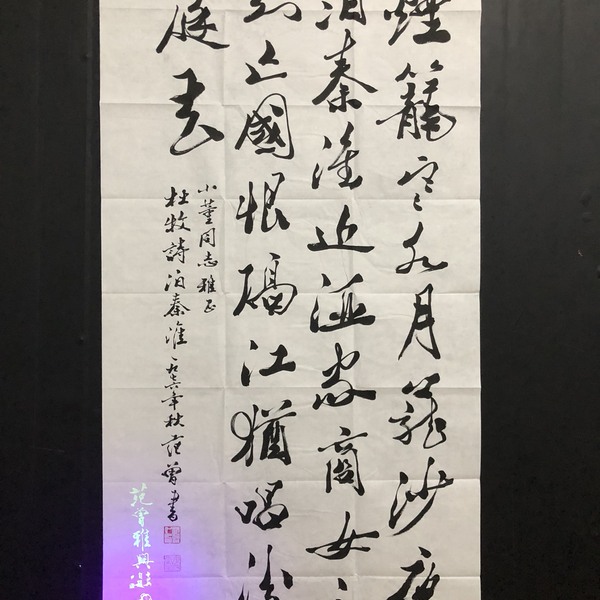 煙籠寒水月籠沙夜
泊秦淮近酒家商女不
知亡國恨隔江猶唱後
庭花
小董同志雅正
杜牧詩泊秦淮一九七六年秋范曾書
范曾雅興